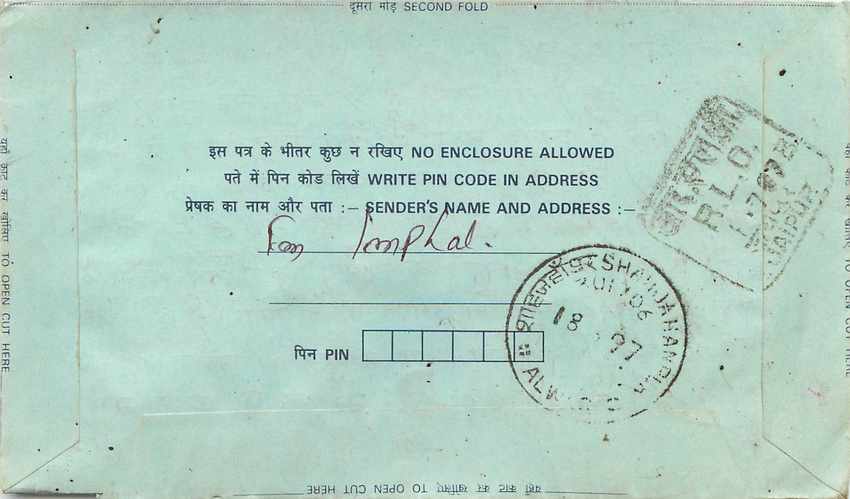 दूसरा मोड़ SECOND FOLD
इस पत्र के भीतर कुछ न रखिए NO ENCLOSURE ALLOWED
पते में पिन कोड लिखें WRITE PIN CODE IN ADDRESS
प्रेषक का नाम और पता :– SENDER'S NAME AND ADDRESS :–
Imphal.
पिन PIN
आर.एल.ओ.
R.L.O.
JAIPUR
शाहजहाँपुर SHAHJAHANPUR
18 97
ALWAR
यहाँ काट कर खोलिए TO OPEN CUT HERE
यहाँ काट कर खोलिए TO OPEN CUT HERE
यहाँ काट कर खोलिए TO OPEN CUT HERE